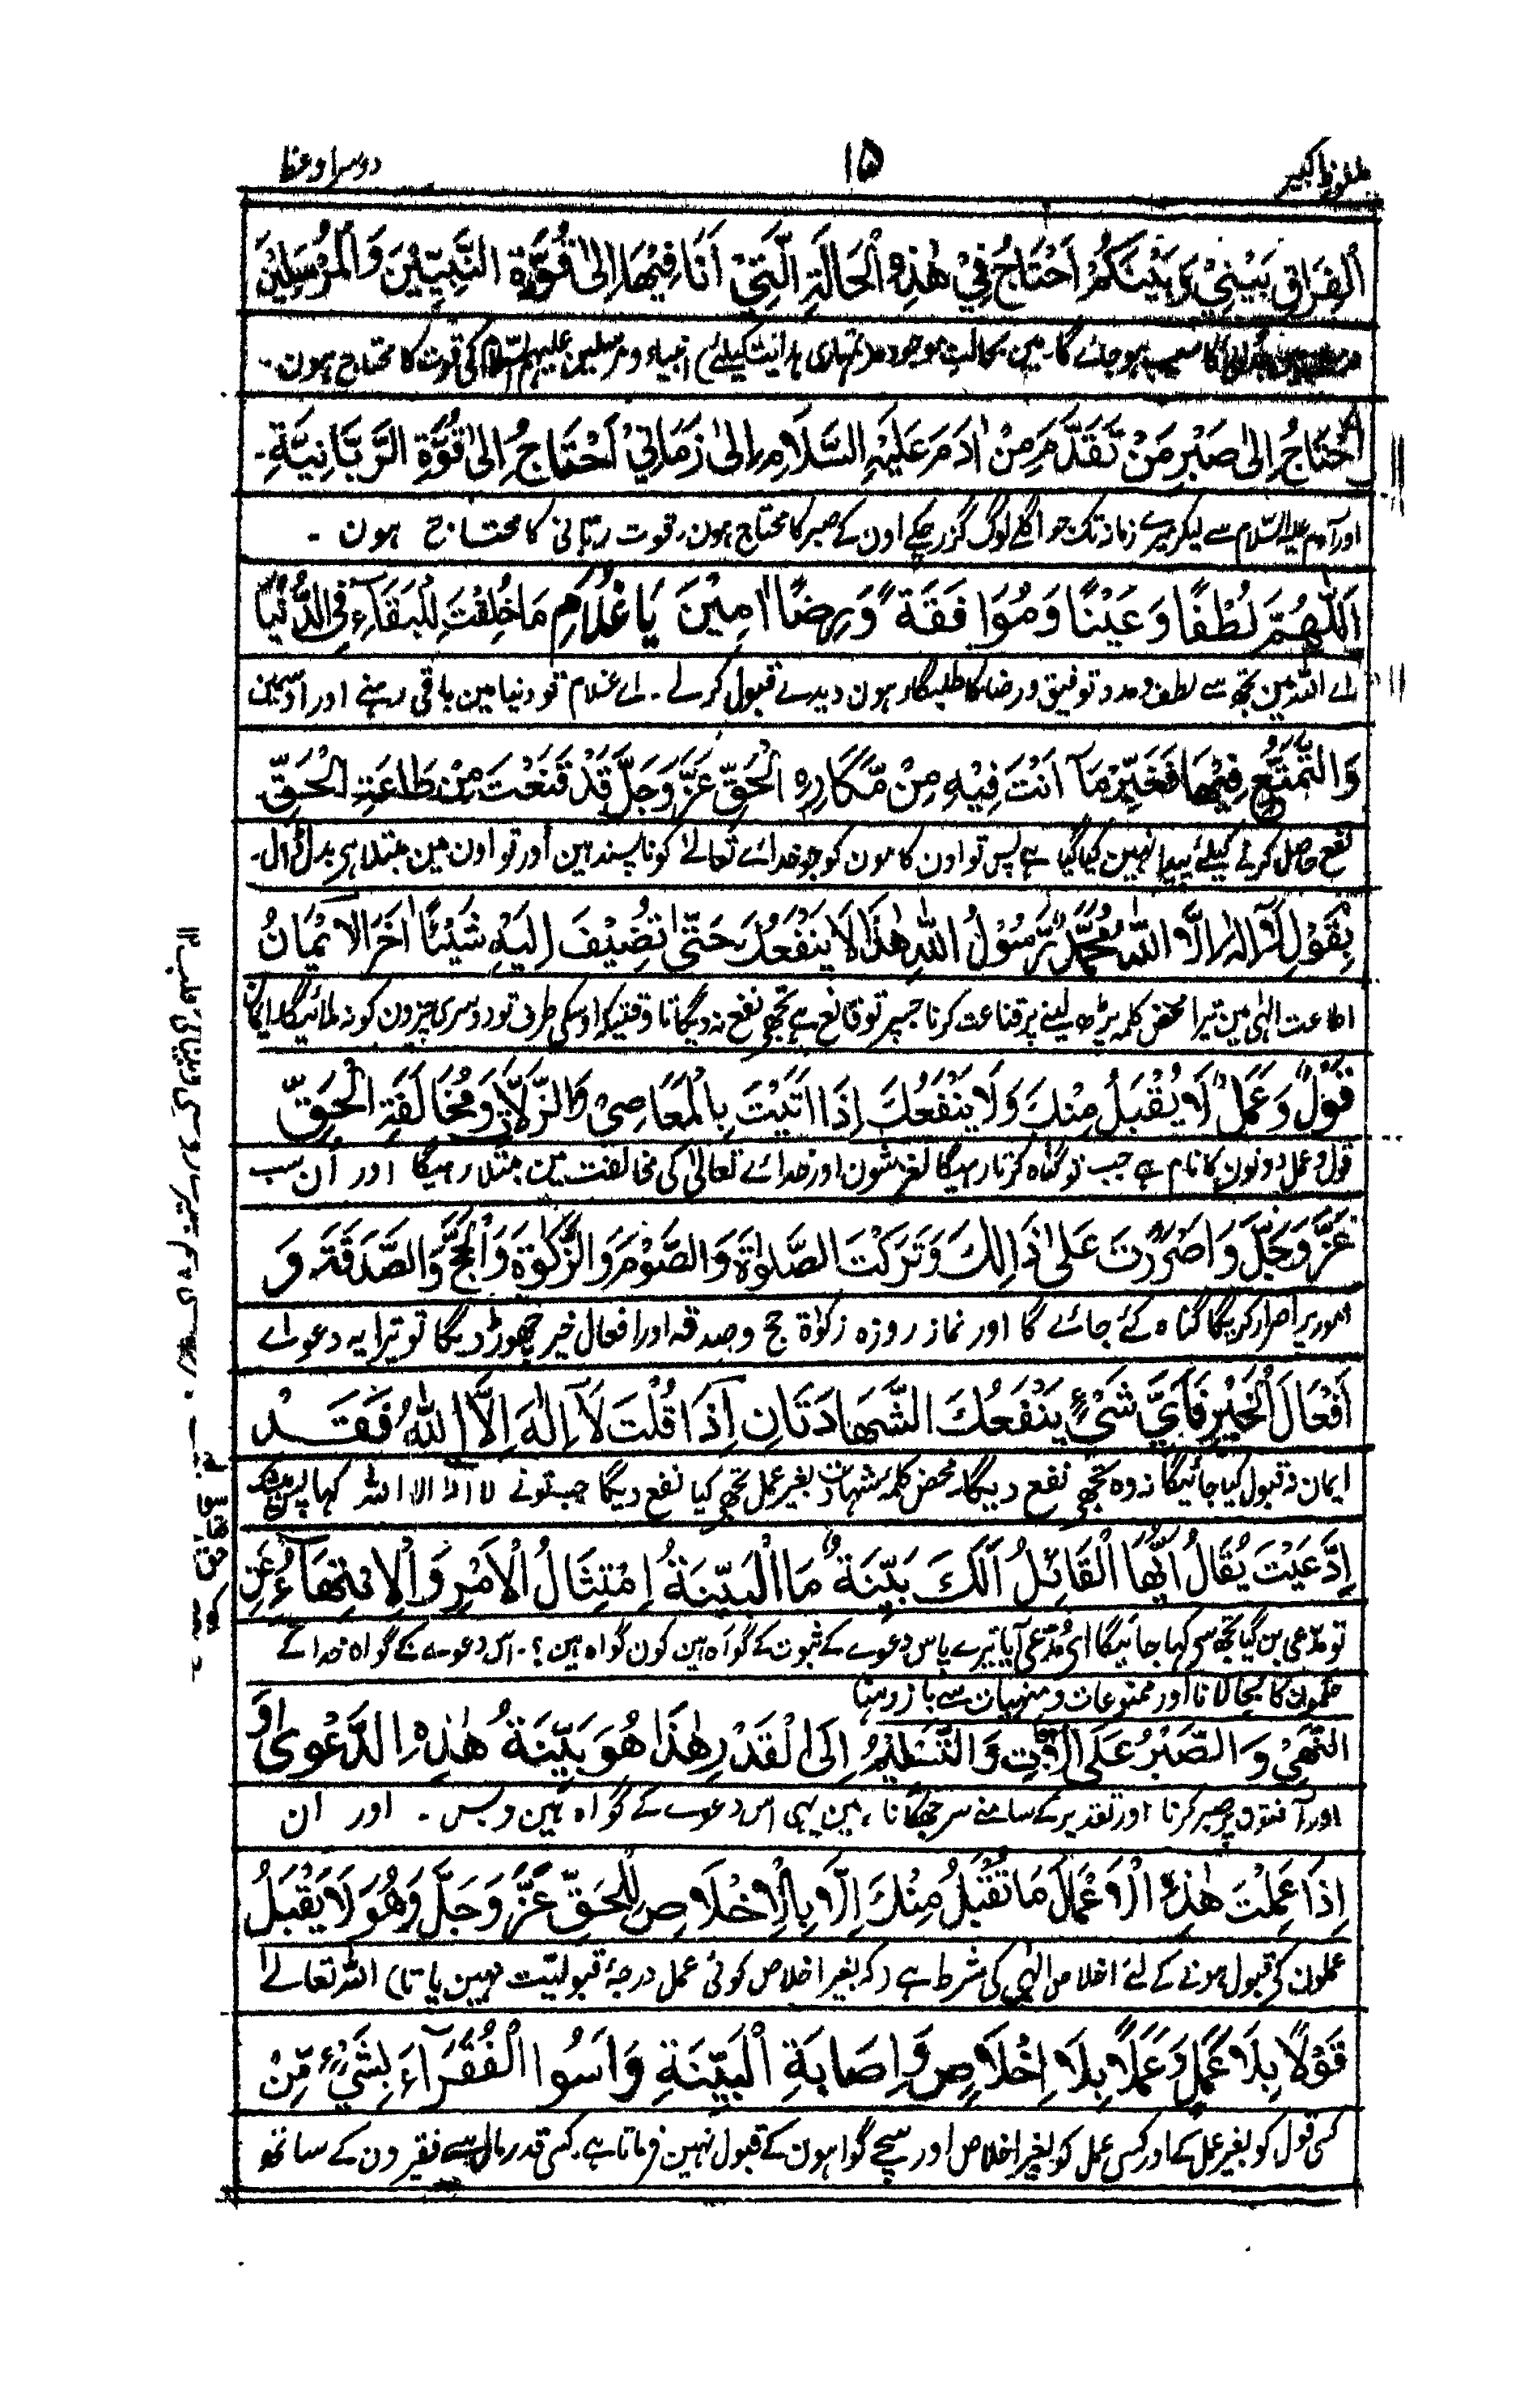 ملفوظ کبیر
۱۵
دوسرا وعظ
اَلْفِرَاقِ بَيْنِيْ وَبَيْنَكُمْ اَحْتَاجُ فِيْ هٰذِهِ الْحَالَةِ الَّتِيْ اَنَا فِيْهَا اِلٰى قُوَّةِ النَّبِيّيْنَ وَالْمُرْسَلِيْنَ
کا سبب ہو جائے گا۔ مین بحالتِ موجودہ تمہاری ہدایت کیلئے انبیاء و مرسلین علیہم السّلام کی قوت کا محتاج ہون۔
اَحْتَاجُ اِلٰى صَبْرِ مَنْ تَقَدَّمَ مِنْ اٰدَمَ عَلَيْهِ السَّلَامِ اِلٰى زَمَانِيْ اَحْتَاجُ اِلٰى قُوَّةِ الرَّبَّانِيَّةِ۔
اور آدم علیہ السّلام سے لیکر میرے زمانہ تک جو اگلے لوگ گزر چکے اون کے صبر کا محتاج ہون۔ قوت ربّانی کا محتاج ہون ۔
اَللّٰهُمَّ لُطْفًا وَعَيْنًا وَمُوَافَقَةً وَرِضًا اٰمِيْنَ يَا غُلَامِ مَا خُلِقْتَ لِلْبَقَآءِ فِي الدُّنْيَا
اے اللہ مین تجھ سے لطف و مدد توفیق و رضا کا طلبگار ہون دیدے قبول کر لے ۔ اے غلام تو دنیا مین باقی رہنے اور اوسمین
وَالتَّمَتُّعِ فِيْهَا فَغَيِّرْ مَآ اَنْتَ فِيْهِ مِنْ مَّكَارِهِ الْحَقِّ عَزَّ وَجَلَّ قَدْ قَنَعْتَ مِنْ طَاعَةِ الْحَقِّ
نفع حاصل کرنے کیلئے پیدا نہین کیا گیا ہے پس تو اون کامون کو جو خدائے تعالےٰ کو ناپسند ہین اور تو اون مین مبتلا ہے بدل ڈال۔
بِقَوْلِ لَآ اِلٰهَ اِلَّا اللّٰهُ مُحَمَّدٌ رَّسُوْلُ اللّٰهِ هٰذَا لَا يَنْفَعُكَ حَتّٰى تُضِيْفَ اِلَيْهِ شَيْئًا اٰخَرَ الْاِيْمَانُ
اطاعت الٰہی مین تیرا محض کلمہ پڑھ لینے پر قناعت کرنا جسپر تو قانع ہے تجھے نفع نہ دیگا تا وقتیکہ اوسکی طرف تو دوسری چیزون کو نہ ملائیگا۔ ایمان
قَوْلٌ وَعَمَلٌ لَا يُقْبَلُ مِنْكَ وَلَا يَنْفَعُكَ اِذَا اَتَيْتَ بِالْمَعَاصِيْ وَالزَّلَّاتِ وَمُخَالَفَةِ الْحَقِّ
قول و عمل دونون کا نام ہے جب تو گناہ کرتا رہیگا لغزشون اور خدائے تعالیٰ کی مخالفت مین مبتلا رہیگا اور اُن سب
عَزَّ وَجَلَّ وَاَصْرَرْتَ عَلٰى ذَالِكَ وَتَرَكْتَ الصَّلٰوةَ وَالصَّوْمَ وَالزَّكٰوةَ وَالْحَجَّ وَالصَّدَقَةَ وَ
امور پر اصرار کریگا گناہ کئے جائے گا اور نماز روزہ زکوٰۃ حج و صدقہ اور افعال خیر چھوڑ دیگا تو تیرا یہ دعوےٰ
اَفْعَالَ الْخَيْرِ فَاَيَّ شَيْءٍ يَنْفَعُكَ الشَّهَادَتَانِ اِذَا قُلْتَ لَآ اِلٰهَ اِلَّا اللّٰهُ فَقَدْ
ایمان نہ قبول کیا جائیگا نہ وہ تجھے نفع دیگا۔ محض کلمۂ شہادت بغیر عمل تجھے کیا نفع دیگا جب تونے لا الہ الا اللہ کہا پس بیشک
اِدَّعَيْتَ يُقَالُ اَيُّهَا الْقَائِلُ اَلَكَ بَيِّنَةٌ مَا الْبَيِّنَةُ اِمْتِثَالُ الْاَمْرِ وَالْاِنْتِهَآءُ عَنِ
تو مدّعی بن گیا تجھ سے کہا جائیگا اے مُدّعی آیا تیرے پاس دعوے کے ثبوت کے گواہ ہین کون گواہ ہین؟۔ اس دعوے کے گواہ خدا کے
حکمون کا بجا لانا اور ممنوعات و منہیات سے باز رہنا
النَّهْيِ وَالصَّبْرُ عَلَى الْاٰفَاتِ وَالتَّسْلِيْمُ اِلَى الْقَدْرِ هٰذَا هُوَ بَيِّنَةُ هٰذِهِ الدَّعْوٰى وَ
اور آفتون پر صبر کرنا اور تقدیر کے سامنے سر جھکانا ہین یہی اس دعوے کے گواہ ہین و بس ۔ اور ان
اِذَا عَمِلْتَ هٰذِهِ الْاَعْمَالَ مَا تُقْبَلُ مِنْكَ اِلَّا بِالْاِخْلَاصِ لِلْحَقِّ عَزَّ وَجَلَّ وَهُوَ لَا يَقْبَلُ
عملون کی قبول ہونے کے لئے اخلاص الٰہی کی شرط ہے (کہ بغیر اخلاص کوئی عمل درجۂ قبولیّت نہین پاتا) اللہ تعالےٰ
قَوْلًا بِلَا عَمَلٍ وَعَمَلًا بِلَا اِخْلَاصٍ وَاِصَابَةِ الْبَيِّنَةِ وَاَسُوا الْفُقَرَآءَ بِشَيْءٍ مِّنْ
کسی قول کو بغیر عمل کے اور کسی عمل کو بغیر اخلاص اور سچے گواہون کے قبول نہین فرماتا ہے۔ کسی قدر مال سے فقیرون کے ساتھ